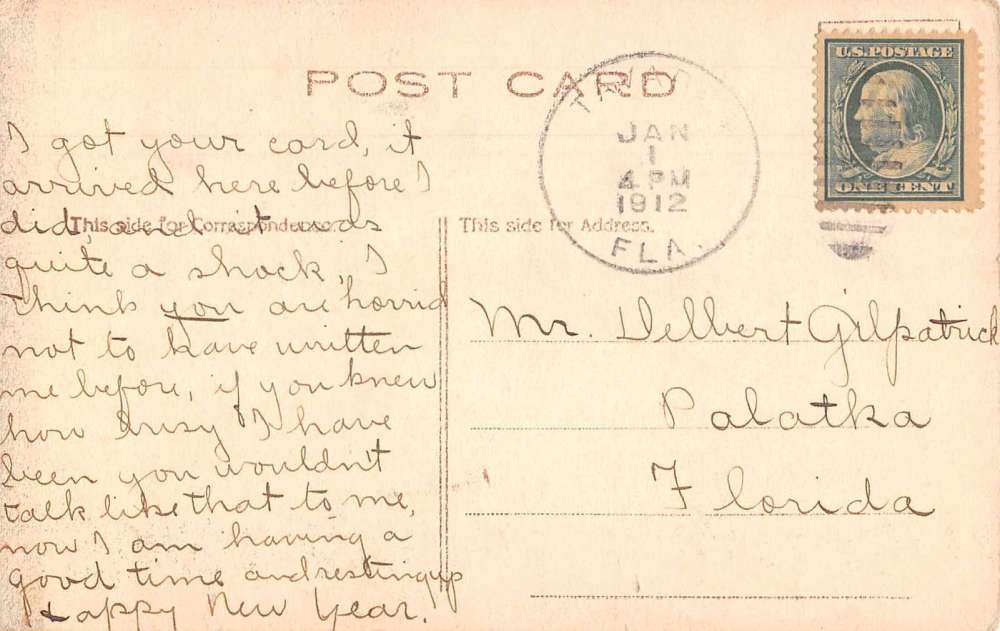 POST CARD
U.S. POSTAGE
ONE CENT
JAN
1
4 PM
1912
FLA.
This side for Correspondence.
This side for Address.
I got your card, it
arrived here before I
did, and it was
quite a shock, I
think you are horrid
not to have written
me before, if you knew
how busy I have
been you wouldn't
talk like that to me,
now I am having a
good time and resting up
Happy New Year.
Mr. Delbert Gilpatrick
Palatka
Florida